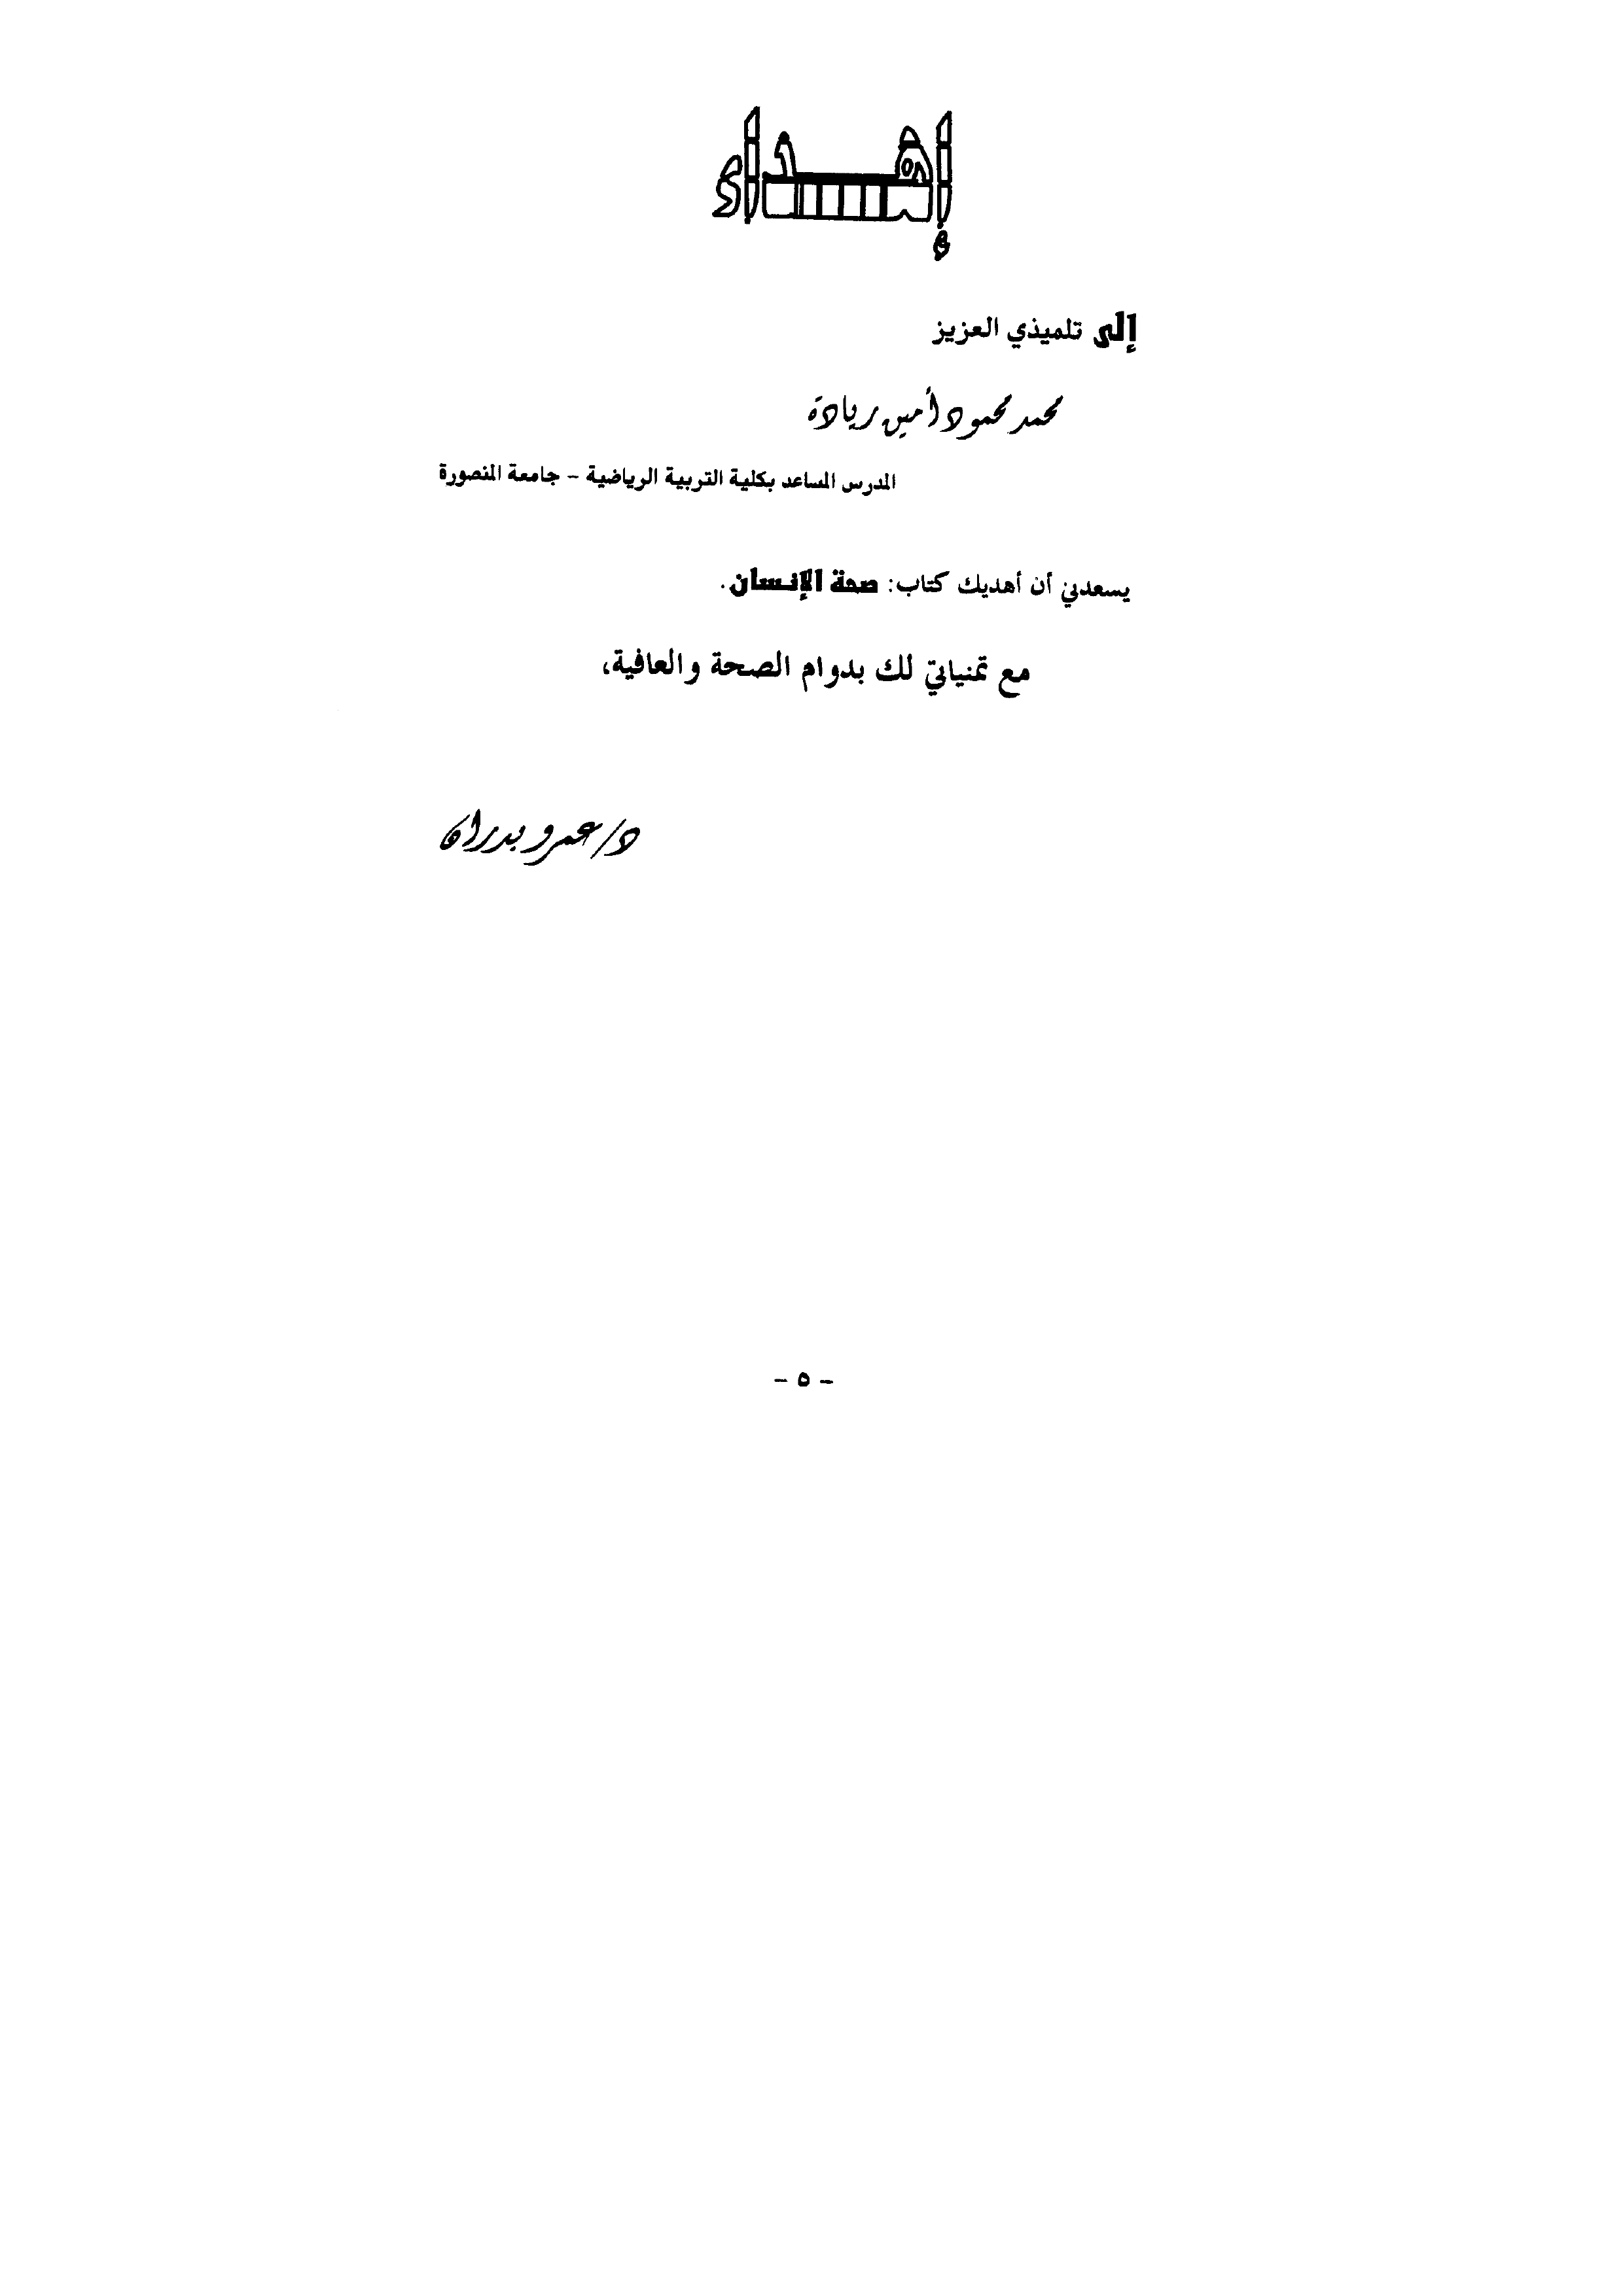 إهـــداء
إلى تلميذي العزيز
محمد محمود أمين زيادة
المدرس المساعد بكلية التربية الرياضية – جامعة المنصورة
يسعدني أن أهديك كتاب: صحة الإنسان.
مع تمنياتي لك بدوام الصحة والعافية،
د/عمرو بدران
- ٥ -